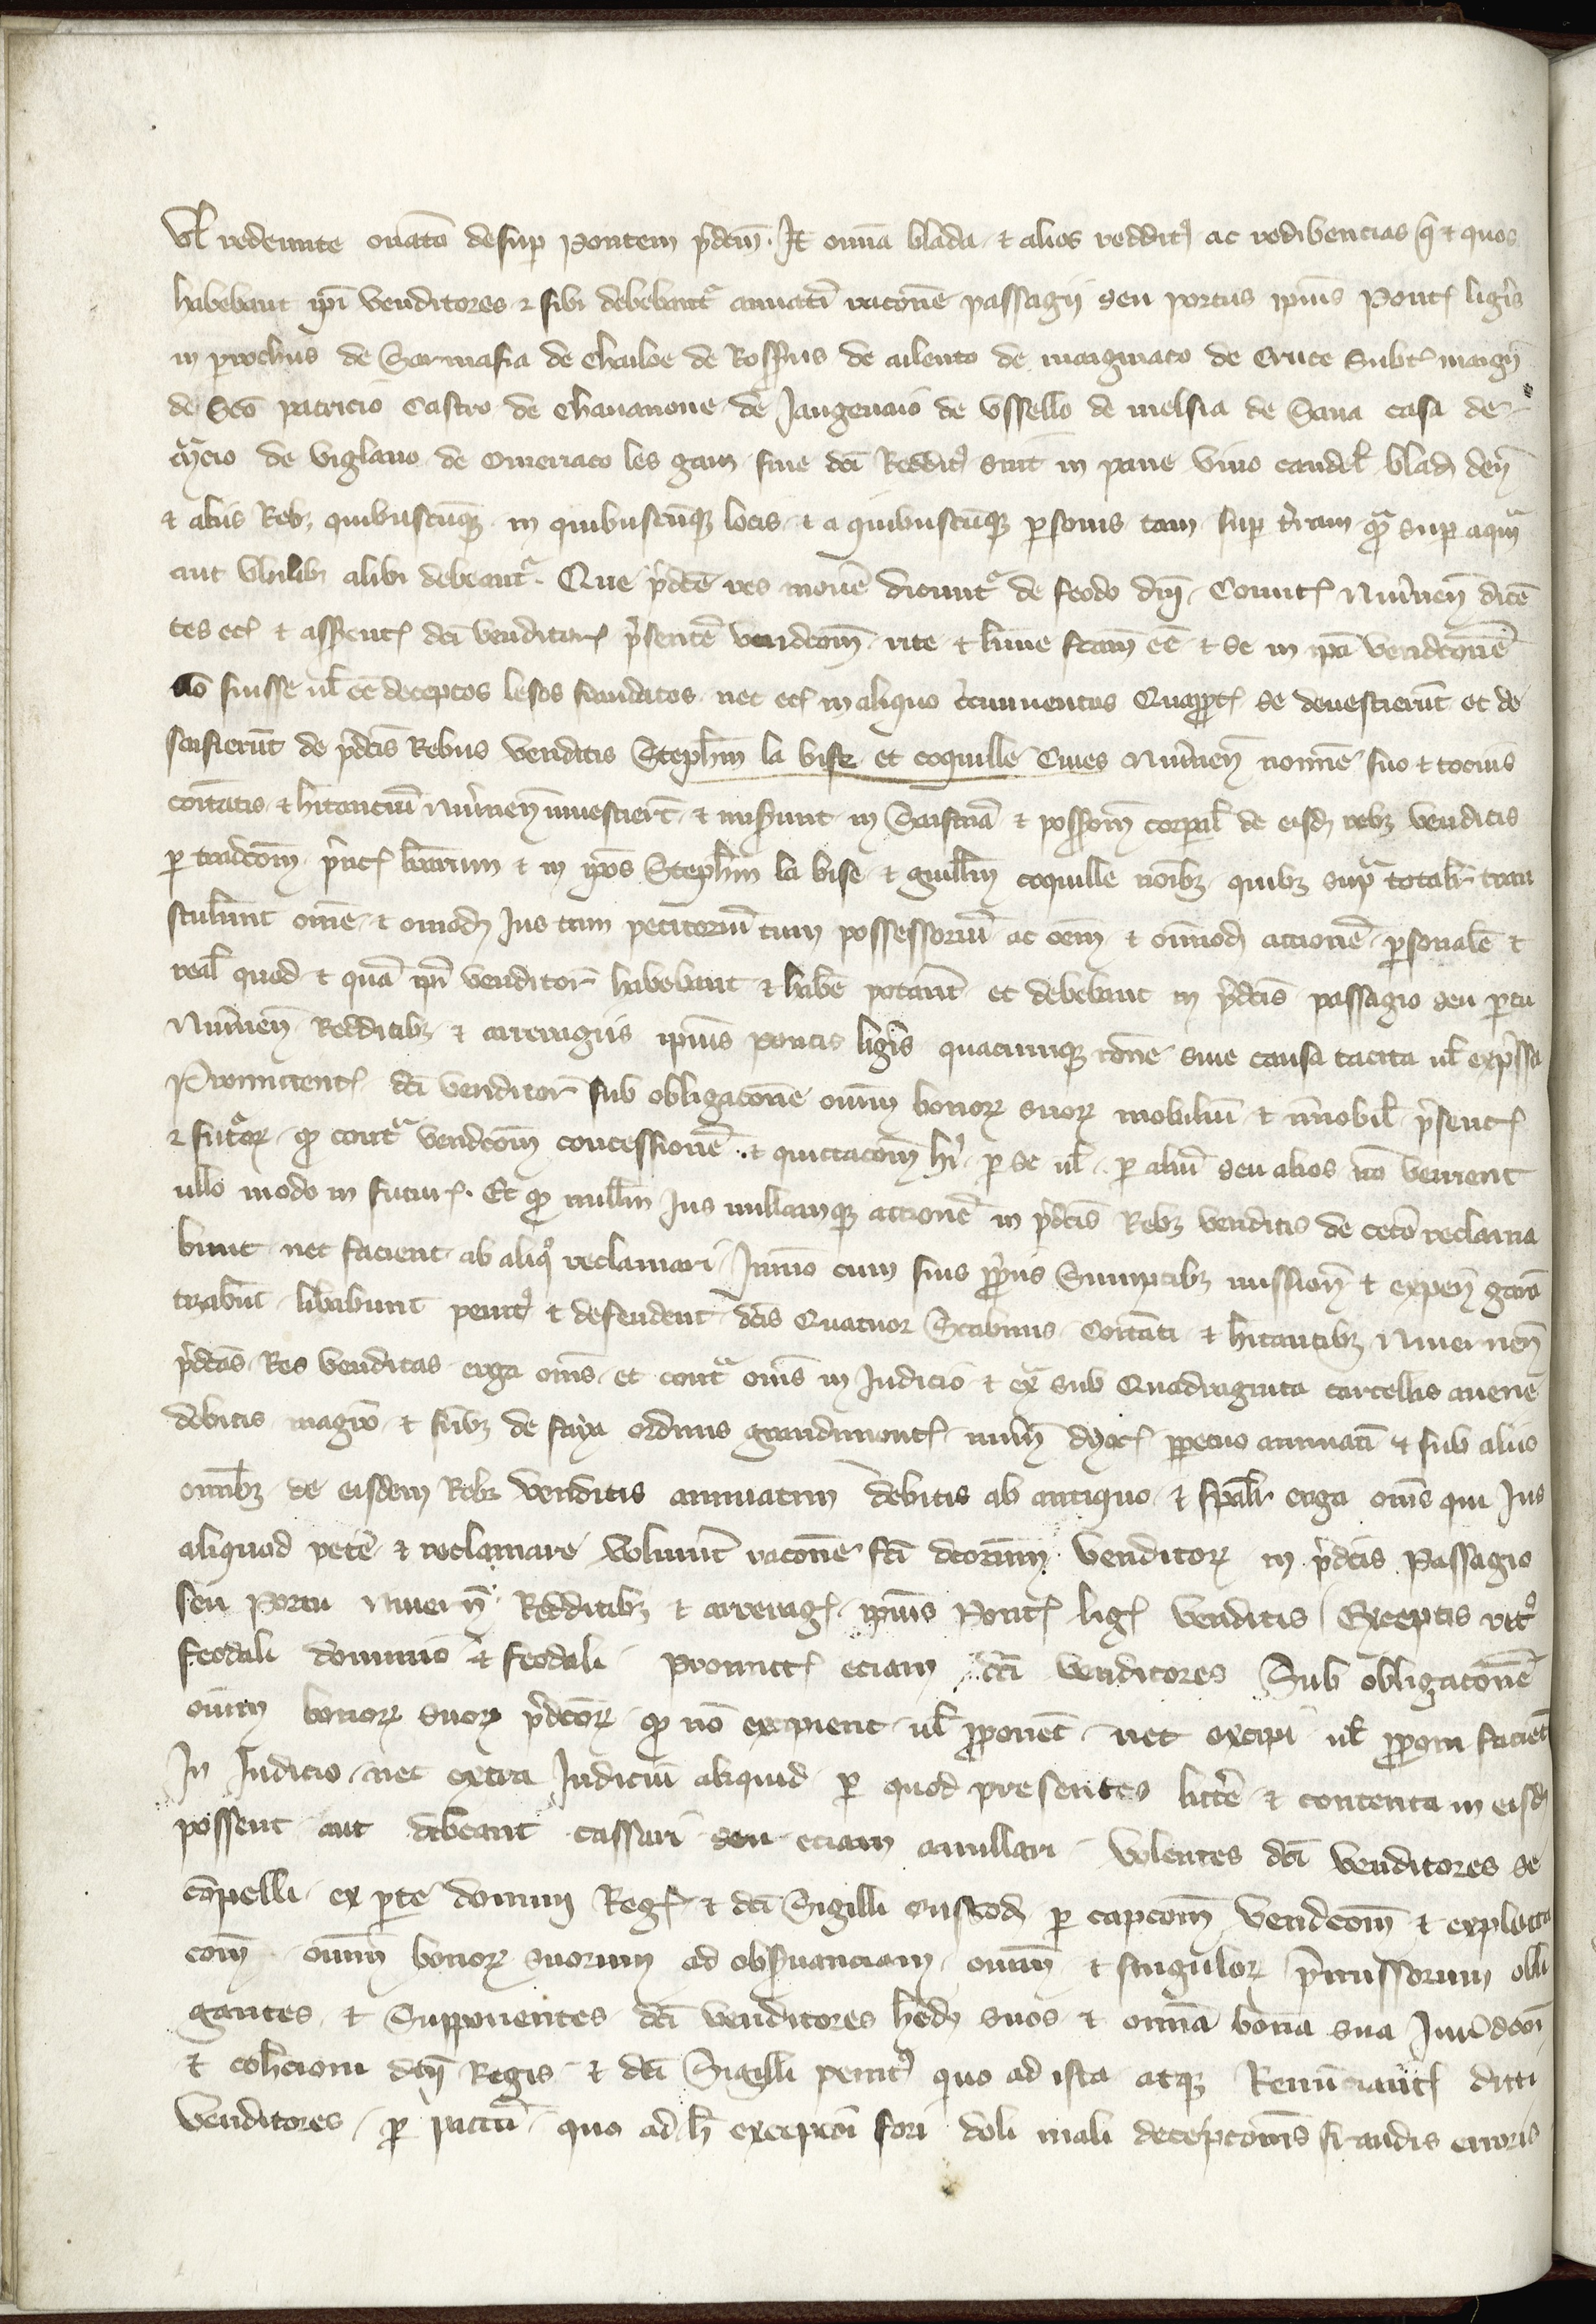 vl redeunte onata desup Pontem pdcm. It omia blada et alios reddit ac redibencias q et quos
habebant ipi venditores et sibi debebant annati racone passagii seu portus ipius Pont ligis
in prochiis de Sarmasia de Chaloe de Rosseriis de ailento de marginaco de Cruce Subt margn
de Sco patricio Castro de Chananone de Jangenaio de vssello de melsia de Sana casa de
de viglano de Omeriaco les gam siue dci Reddit sint in pane vino candel blad den
et aliis Rebz quibuscuqz in quibuscuqz locis et a quibuscuqz psonis tam sup tram qua sup aqua
aut vbilibz alibi debeant. Que pdcte res moue dicunt de feodo dni Comit Niuernen dicen
tes ec et asserent dci venditor psente vendcom rite et bune fcam ee et se in ipa vendicione
no fuisse ul ee deceptos lesos fraudatos nec ec in aliquo circunuentos Quapropt se deuestierut et de
saisierut de pdcis Rebus venditis Stephm la bise et coquille Ciues Niuernen nomie suo et tocius
coitatis et hitanciu Niuernen inuestiert et miserunt in Saisina et possom corpal de eisd rebz venditis
p tradcom pnt lrarum et in ipos Stephm la bise et guillm coquille noibz quibz supra totalr tran
stulerunt ome et omod Jus tam petitoriu cum possessoriu ac oem et oimod actione psonale et
real quod et qua ipi venditor habebant et habe poterant et debebant in pdcis passagio seu portu
Niuernen Redditibz et arreragiis ipius pontis ligis quacumqz rone siue causa tacita ul expssa
Promittent dci venditor sub obligacone oium bonor suor mobiliu et inmobil psent
et futor q cont vendcom concessione et quictacom hi p se ul p aliu seu alios no venient
ullo modo in futur. Et q nullm Jus nullamqz actione in pdcis Rebz venditis de cetero reclama
bunt nec facient ab aliq reclamari Immo cum suis ppriis Sumptibz mission et expen garan
tizabut libabunt penit et defendent dcis Quatuor Scabinis Coitati et hitantibz Niuernen
pdcas Res venditas erga oms et cont oms in Judicio et ex sub Quadraginta carcellis auene
debitis magro et fribz de faya ordinis grandimont niuern dyoc ppetuo annuati et sub aliis
omibz de eisdem Rebz venditis annuatim debitis ab antiquo et spalr erga oms qui Jus
aliquod pete et reclamare voluint racone fci dcorum venditor in pdcis Passagio
seu Portu Niuern Redditibz et arrerag ipius Pont lig venditis Exceptis
feodali dominio et feodali promitt eciam dci venditores Sub obligacone
oium bonor suor pdcor q no excipient ul pponent nec excipi ul pponi facient
In Judicio nec extra Judiciu aliquid p quod presentes littere et contenta in eisd
possent aut debeant cassari seu eciam annullari volentes dci venditores se
copelli ex parte domini Reg et dci Sigilli custod p capcom vendcom et explecta
com oium bonor suorum ad obseruanciam oium et singulor pmissorum obli
gantes et Supponentes dci venditores hed suos et omia bona sua Jurisdcoi
et cohercioni dni Regis et dci Sigilli penit quo ad ista atqz Renunciant dicti
venditores p pactu quo ad h excepcoi fori doli mali decepcionis fraudis erroris